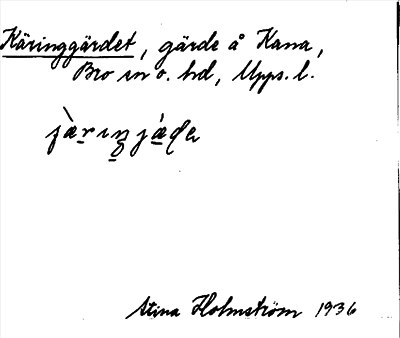 Käringgärdet, gärde å Kana,
Bro sn o. hd, Upps. l.
Stina Holmström 1936